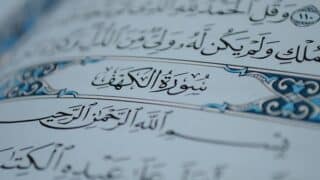 وَقُلِ ٱلْحَمْدُ لِلَّهِ
ٱلْمُلْكِ وَلَمْ يَكُن لَّهُۥ وَلِىٌّ مِّنَ ٱلذُّلِّ
سُورَةُ ٱلْكَهْفِ
بِسْمِ ٱللَّهِ ٱلرَّحْمَٰنِ ٱلرَّحِيمِ
عَلَىٰ عَبْدِهِ ٱلْكِتَٰبَ